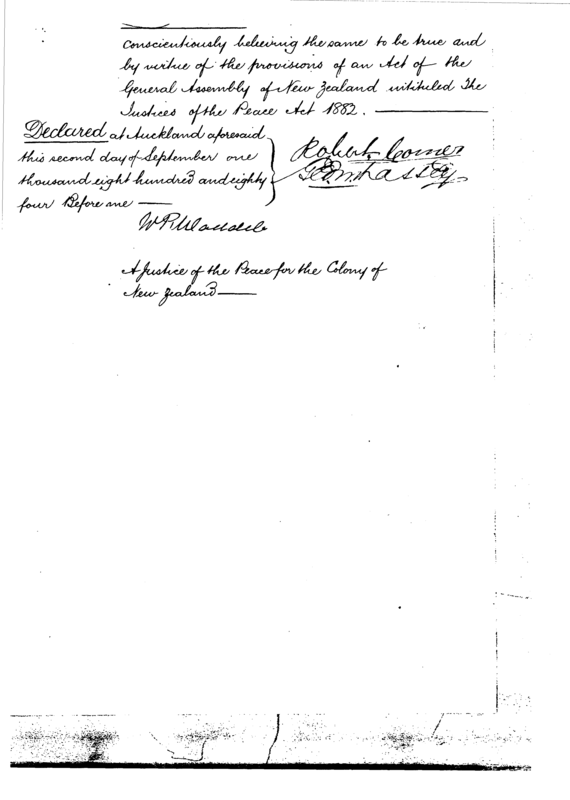 conscientiously believing the same to be true and
by virtue of the provisions of an Act of the
General Assembly of New Zealand intituled The
Justices of the Peace Act 1882.
Declared at Auckland aforesaid
this second day of September one
thousand eight hundred and eighty
four Before me
Robert Comer
A Justice of the Peace for the Colony of
New Zealand